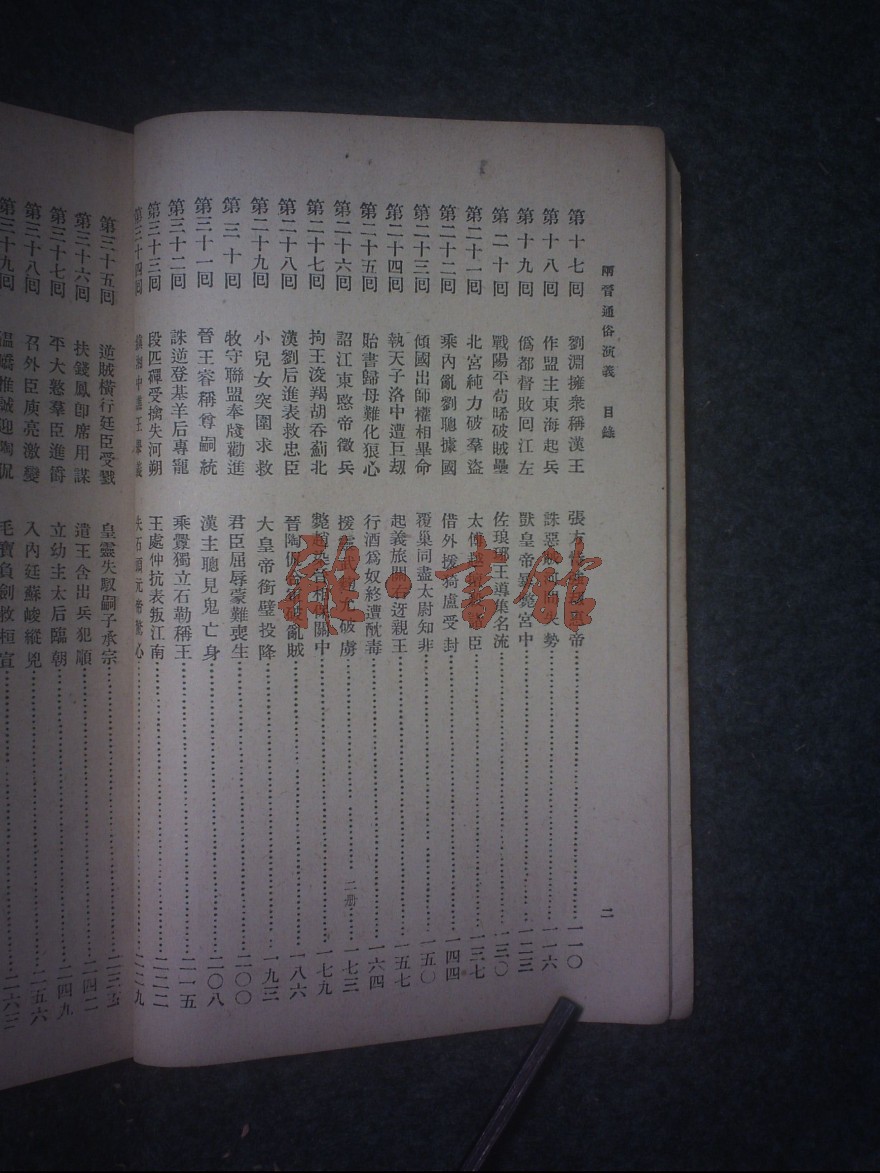 兩晉通俗演義 目錄 二
第十七回 劉淵擁衆稱漢王 張方 帝 一一〇
第十八回 作盟主東海起兵 誅惡 河間失勢 一一六
第十九回 僞都督敗回江左 獸皇帝暴斃宮中 一二三
第二十回 戰陽平苟晞破賊壘 佐琅琊王導集名流 一三〇
第二十一回 北宮純力破羣盜 太傅 臣 一三七
第二十二回 乘內亂劉聰據國 借外援猗盧受封 一四四
第二十三回 傾國出師權相畢命 覆巢同盡太尉知非 一五〇
第二十四回 執天子洛中遭巨刼 起義旅關右迓親王 一五七
第二十五回 貽書歸母難化狼心 行酒爲奴終遭酖毒 一六四
第二十六回 詔江東愍帝徵兵 援 允破虜 二册 一七三
第二十七回 拘王浚羯胡吞薊北 斃趙染 關中 一七九
第二十八回 漢劉后進表救忠臣 晉陶侃 破亂賊 一八六
第二十九回 小兒女突圍求救 大皇帝銜璧投降 一九三
第三十回 牧守聯盟奉牋勸進 君臣屈辱蒙難喪生 二〇〇
第三十一回 晉王睿稱尊嗣統 漢主聰見鬼亡身 二〇八
第三十二回 誅逆登基羊后專寵 乘釁獨立石勒稱王 二一五
第三十三回 段匹磾受擒失河朔 王處仲抗表叛江南 二二二
第三十四回 二二九
第三十五回 逆賊橫行廷臣受戮 皇靈失馭嗣子承宗 二三五
第三十六回 扶錢鳳卽席用謀 遣王含出兵犯順 二四二
第三十七回 平大憝羣臣進爵 立幼主太后臨朝 二四九
第三十八回 召外臣庾亮激變 入內廷蘇峻縱兇 二五六
第三十九回 溫嶠推誠迎陶侃 毛寶負劍救桓宣 二六三
雜·書館